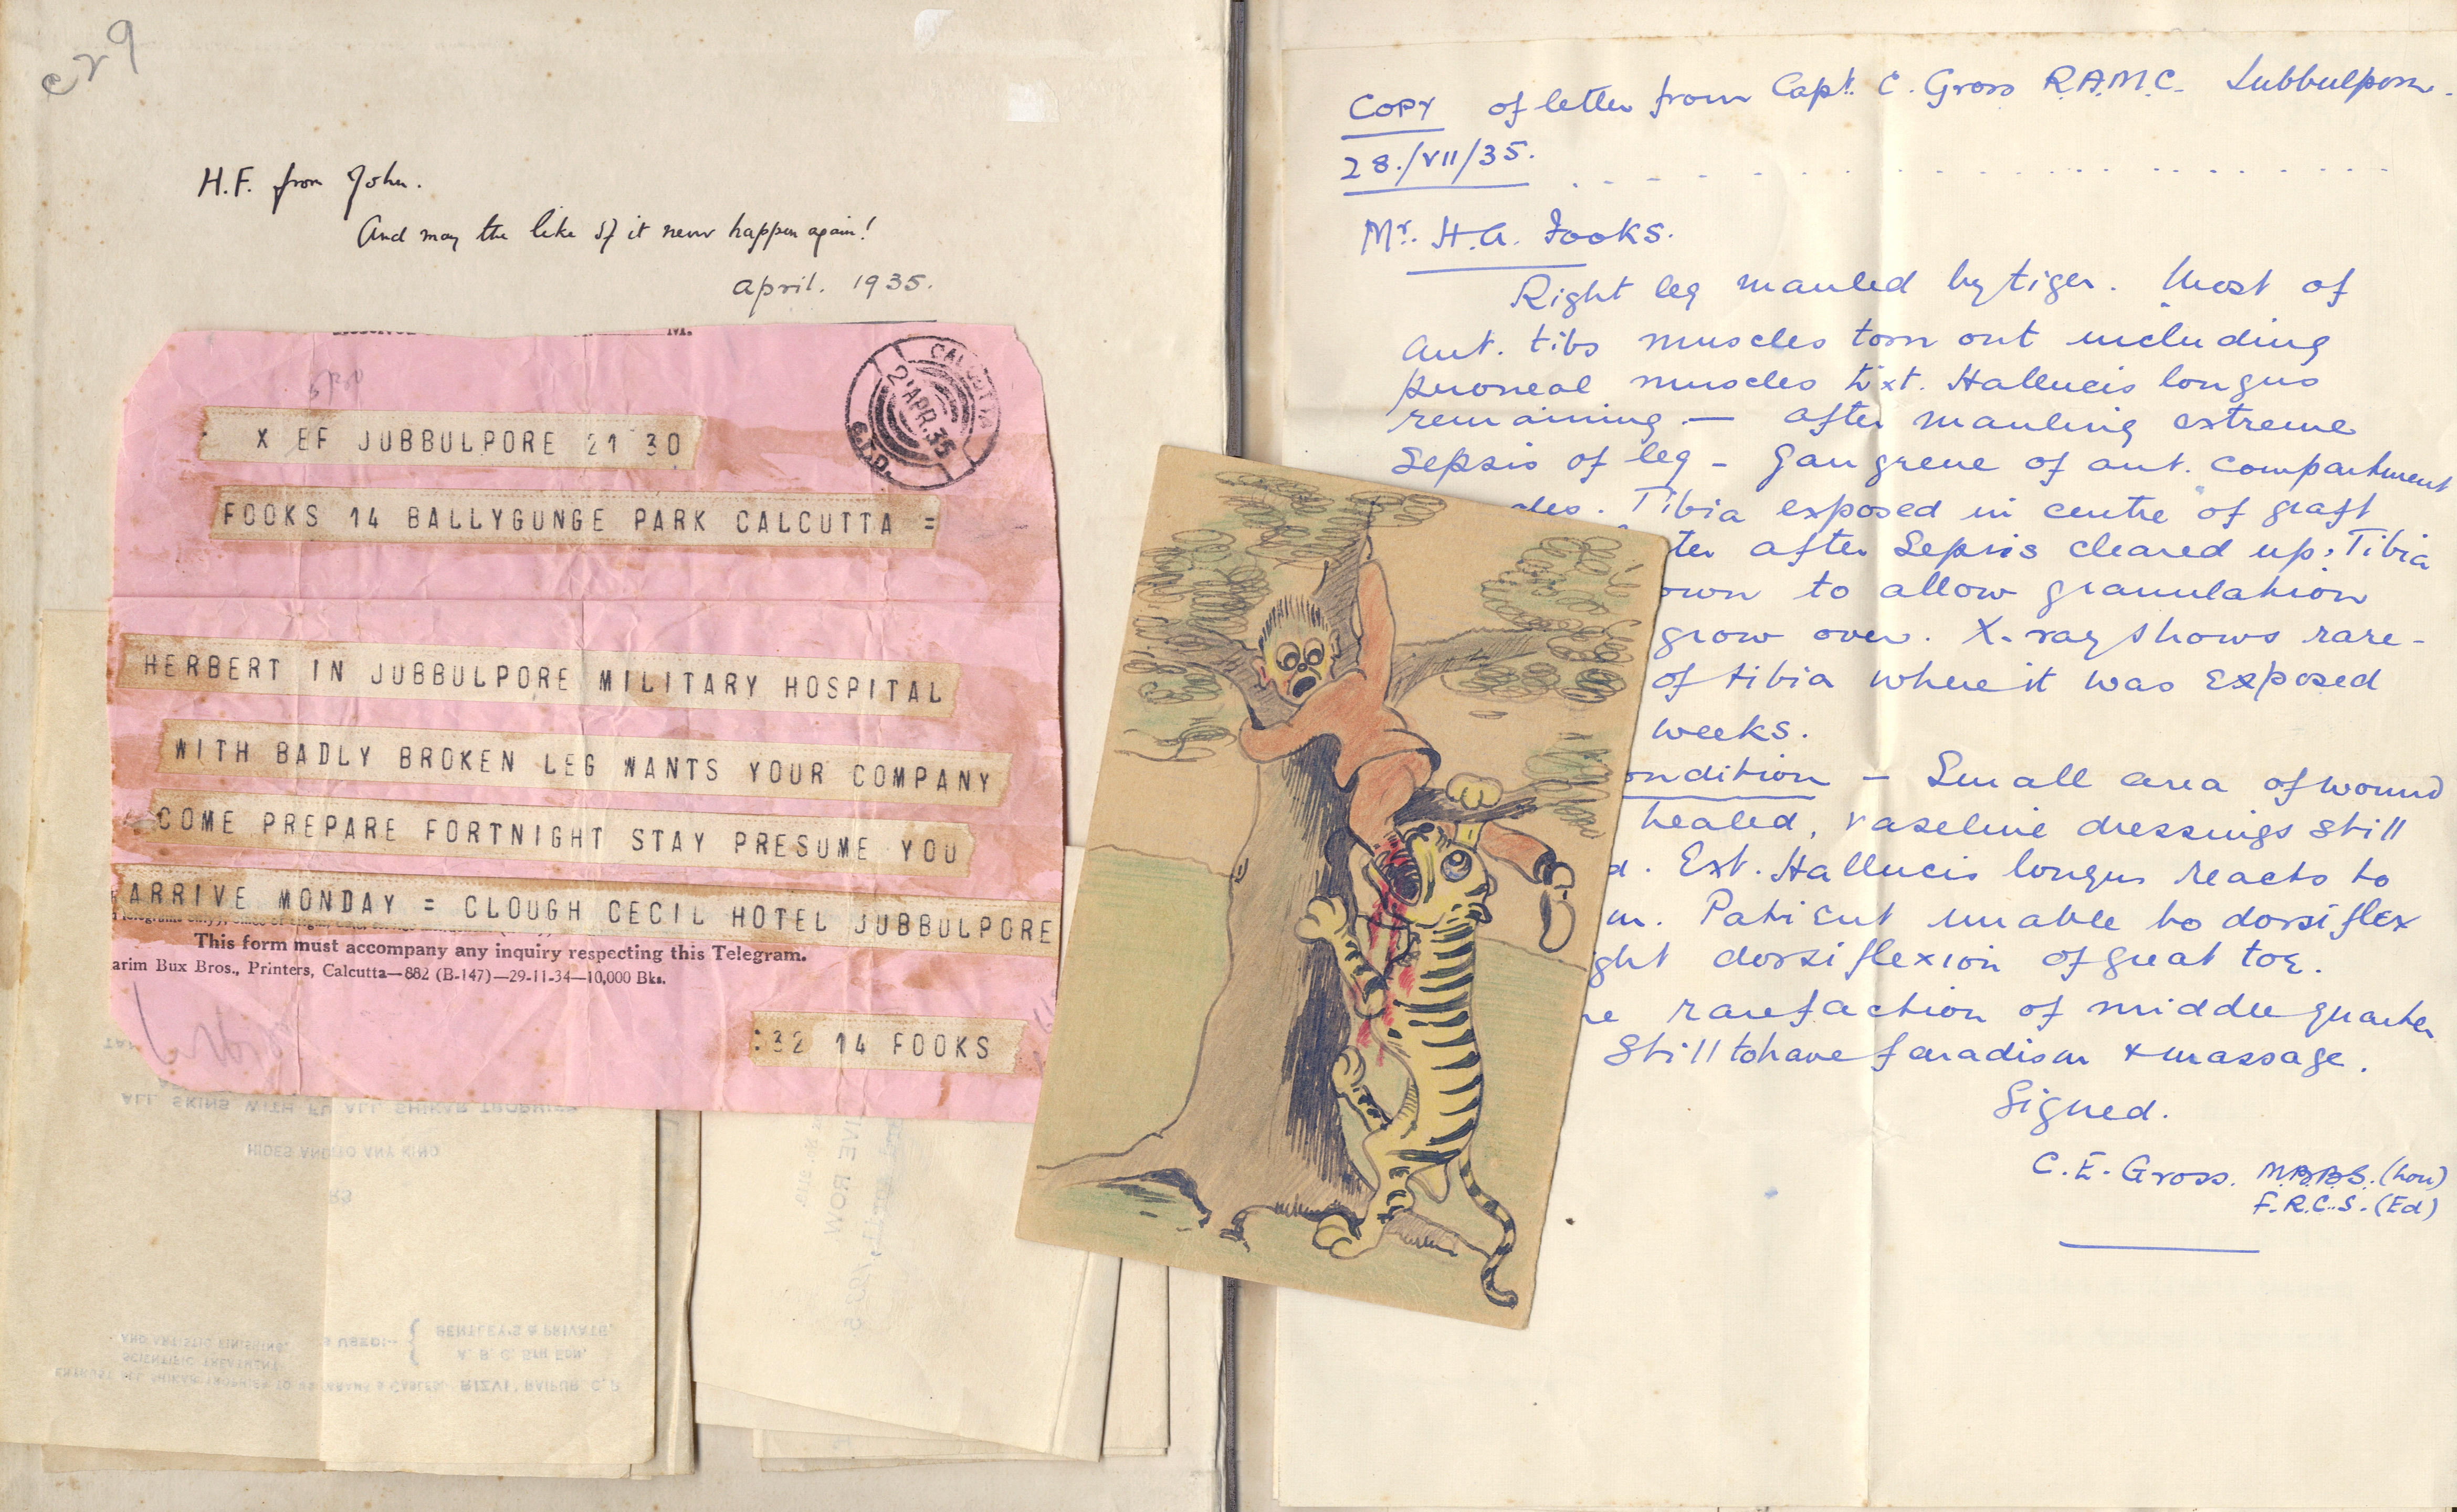 H.F. from John.
And may the like of it never happen again!
april. 1935.
CALCUTTA
21 APR. 35
X EF JUBBULPORE 21 30
FOOKS 14 BALLYGUNGE PARK CALCUTTA =
HERBERT IN JUBBULPORE MILITARY HOSPITAL
WITH BADLY BROKEN LEG WANTS YOUR COMPANY
COME PREPARE FORTNIGHT STAY PRESUME YOU
ARRIVE MONDAY = CLOUGH CECIL HOTEL JUBBULPORE
This form must accompany any inquiry respecting this Telegram.
arim Bux Bros., Printers, Calcutta—882 (B-147)—29-11-34—10,000 Bks.
:32 14 FOOKS
ALL SKINS WITH ALL SHIKAR TROPHIES
HIDES AND TO ANY KIND
BENTLEY'S & PRIVATE.
A. B. C. 5TH EDN.
AND ARTISTIC FINISHING.
SCIENTIFIC TREATMENT
RIZVI, RAIPUR, C. P.
COPY of letter from Capt. C. Gross R.A.M.C. Jubbulpore.
28./VII/35.
Mr. H.A. Fooks.
Right leg mauled by tiger. Most of
Ant. tibs muscles torn out including
peroneal muscles Ext. Hallucis longus
remaining — after mauling extreme
Sepsis of leg - Gangrene of ant. compartment
cles. Tibia exposed in centre of graft
ter after Sepsis cleared up: Tibia
own to allow granulation
grow over. X-ray shows rare-
of tibia where it was exposed
weeks.
ondition — Small area of wound
healed, vaseline dressings still
d. Ext. Hallucis longus reacts to
m. Patient unable to dorsiflex
ght dorsiflexion of great toe.
ne rarefaction of middle quarter
Still to have faradism & massage.
Signed.
C. E. Gross. M.B.B.S. (Lon)
F.R.C.S. (Ed)